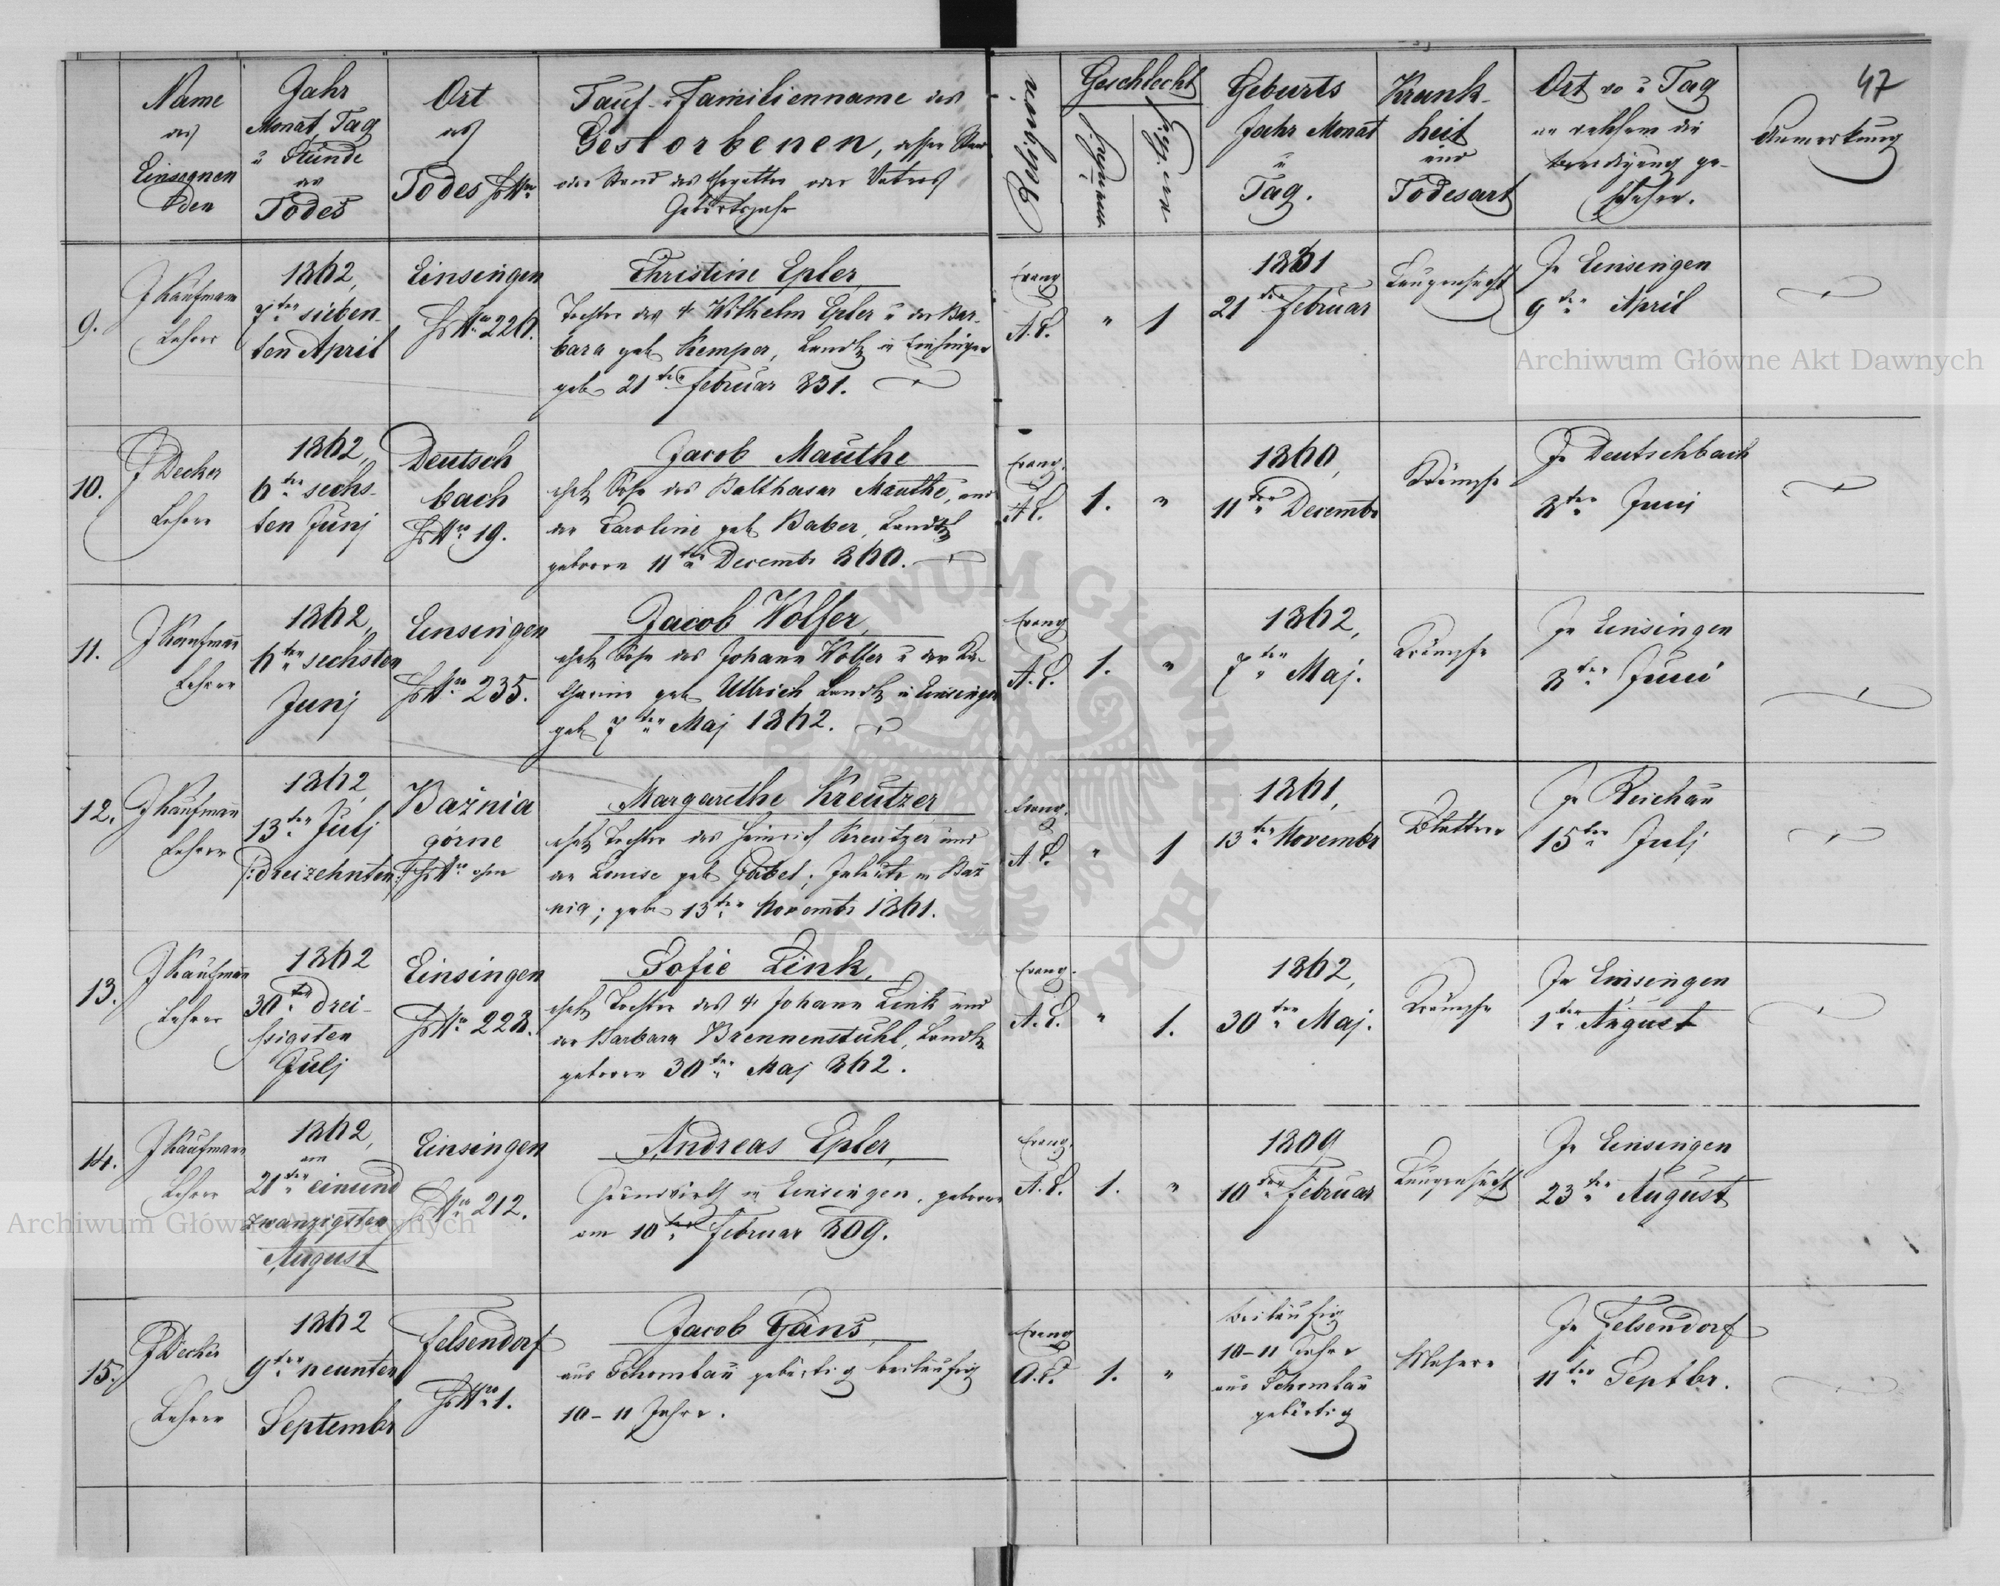 47
Name
des
Einsegnen
den
Jahr
Monat, Tag
u Stunde
des
Todes
Ort
des
Todes HsNro
Tauf- u Familienname des
Gestorbenen, dessen Stand
oder Stand des Gegatten oder Vaters
Geburtsjahr
Religion
Geschlecht
Geburts
Jahr Monat
u
Tag.
Krank-
heit
und
Todesart
Ort wo u Tag
an welchem die
Beerdigung ge-
schehen.
Anmerkung
9.
J Kaufmann
Lehrer
1862,
7ten sieben-
ten April
Einsingen
HsNro 226.
Christine Epler,
Tochter des † Wilhelm Epler u der Bar-
bara geb Kemper, Landl in Einsingen
geb 21ten Februar 831.
Evang
A. C.
"
1
1831
21ten Februar
Lungensucht
In Einsingen
9ten April
10.
J Decker
Lehrer
1862,
6ten sechs-
ten Junj
Deutsch
bach
HsNro 19.
Jacob Mauthe
ehel Sohn des Balthasar Mauthe, und
der Caroline geb Baber, Landl
geboren 11ten Decembr 860.
Evang.
A C.
1.
"
1860,
11ten Decembr
Krämpfe
In Deutschbach
8ten Juni
11.
J Kaufmann
Lehrer
1862,
6ten sechsten
Junj
Einsingen
HsNro 235.
Jacob Wolfer,
ehel Sohn des Johann Wolfer u der Ka-
tharine geb Ullrich Landl in Einsingen
geb 7ten Maj 1862.
Evang
A. C.
1.
"
1862,
7ten Maj.
Krämpfe
In Einsingen
8ten Juni
12.
J Kaufmann
Lehrer
1862
13ten Julj
/:dreizehnten:/
Baźnia
górne
HsNro ohne
Margarethe Kreutzer
ehel Tochter des Heinrich Kreutzer und
der Louise geb Gabel, in Baź
nia; geb 13ten Novembr 1861.
Evang.
A C.
"
1
1861,
13ten Novembr
Blattern
In Reichau
15ten Julj
13.
J Kaufmann
Lehrer
1862
30ten drei-
ssigsten
Julj
Einsingen
HsNro 228.
Sofie Link,
ehel Tochter des † Johann Link und
der Barbara Brennenstuhl, Landl
geboren 30ten Maj 862.
Evang.
A. C.
"
1.
1862,
30ten Maj.
Krämpfe
In Einsingen
1ten August
14.
J Kaufmann
Lehrer
1862,
am
21ten einund
zwanzigsten
August
Einsingen
HsNro 212.
Andreas Epler,
Grundwirth in Einsingen, geboren
am 10ten Februar 809.
Evang.
A. C.
1.
"
1809
10ten Februar
Lungensucht
In Einsingen
23ten August
15.
J Decker
Lehrer
1862
9ten neunten
Septembr
Felsendorf
HsNro 1.
Jacob Gans,
aus Schomlau gebürtig beiläufig
10-11 Jahre.
Evang
A. C.
1.
"
beiläufig
10-11 Jahre
aus Schomlau
gebürtig
Masern
In Felsendorf
11ten Septbr.
Archiwum Główne Akt Dawnych
Archiwum Główne Akt Dawnych